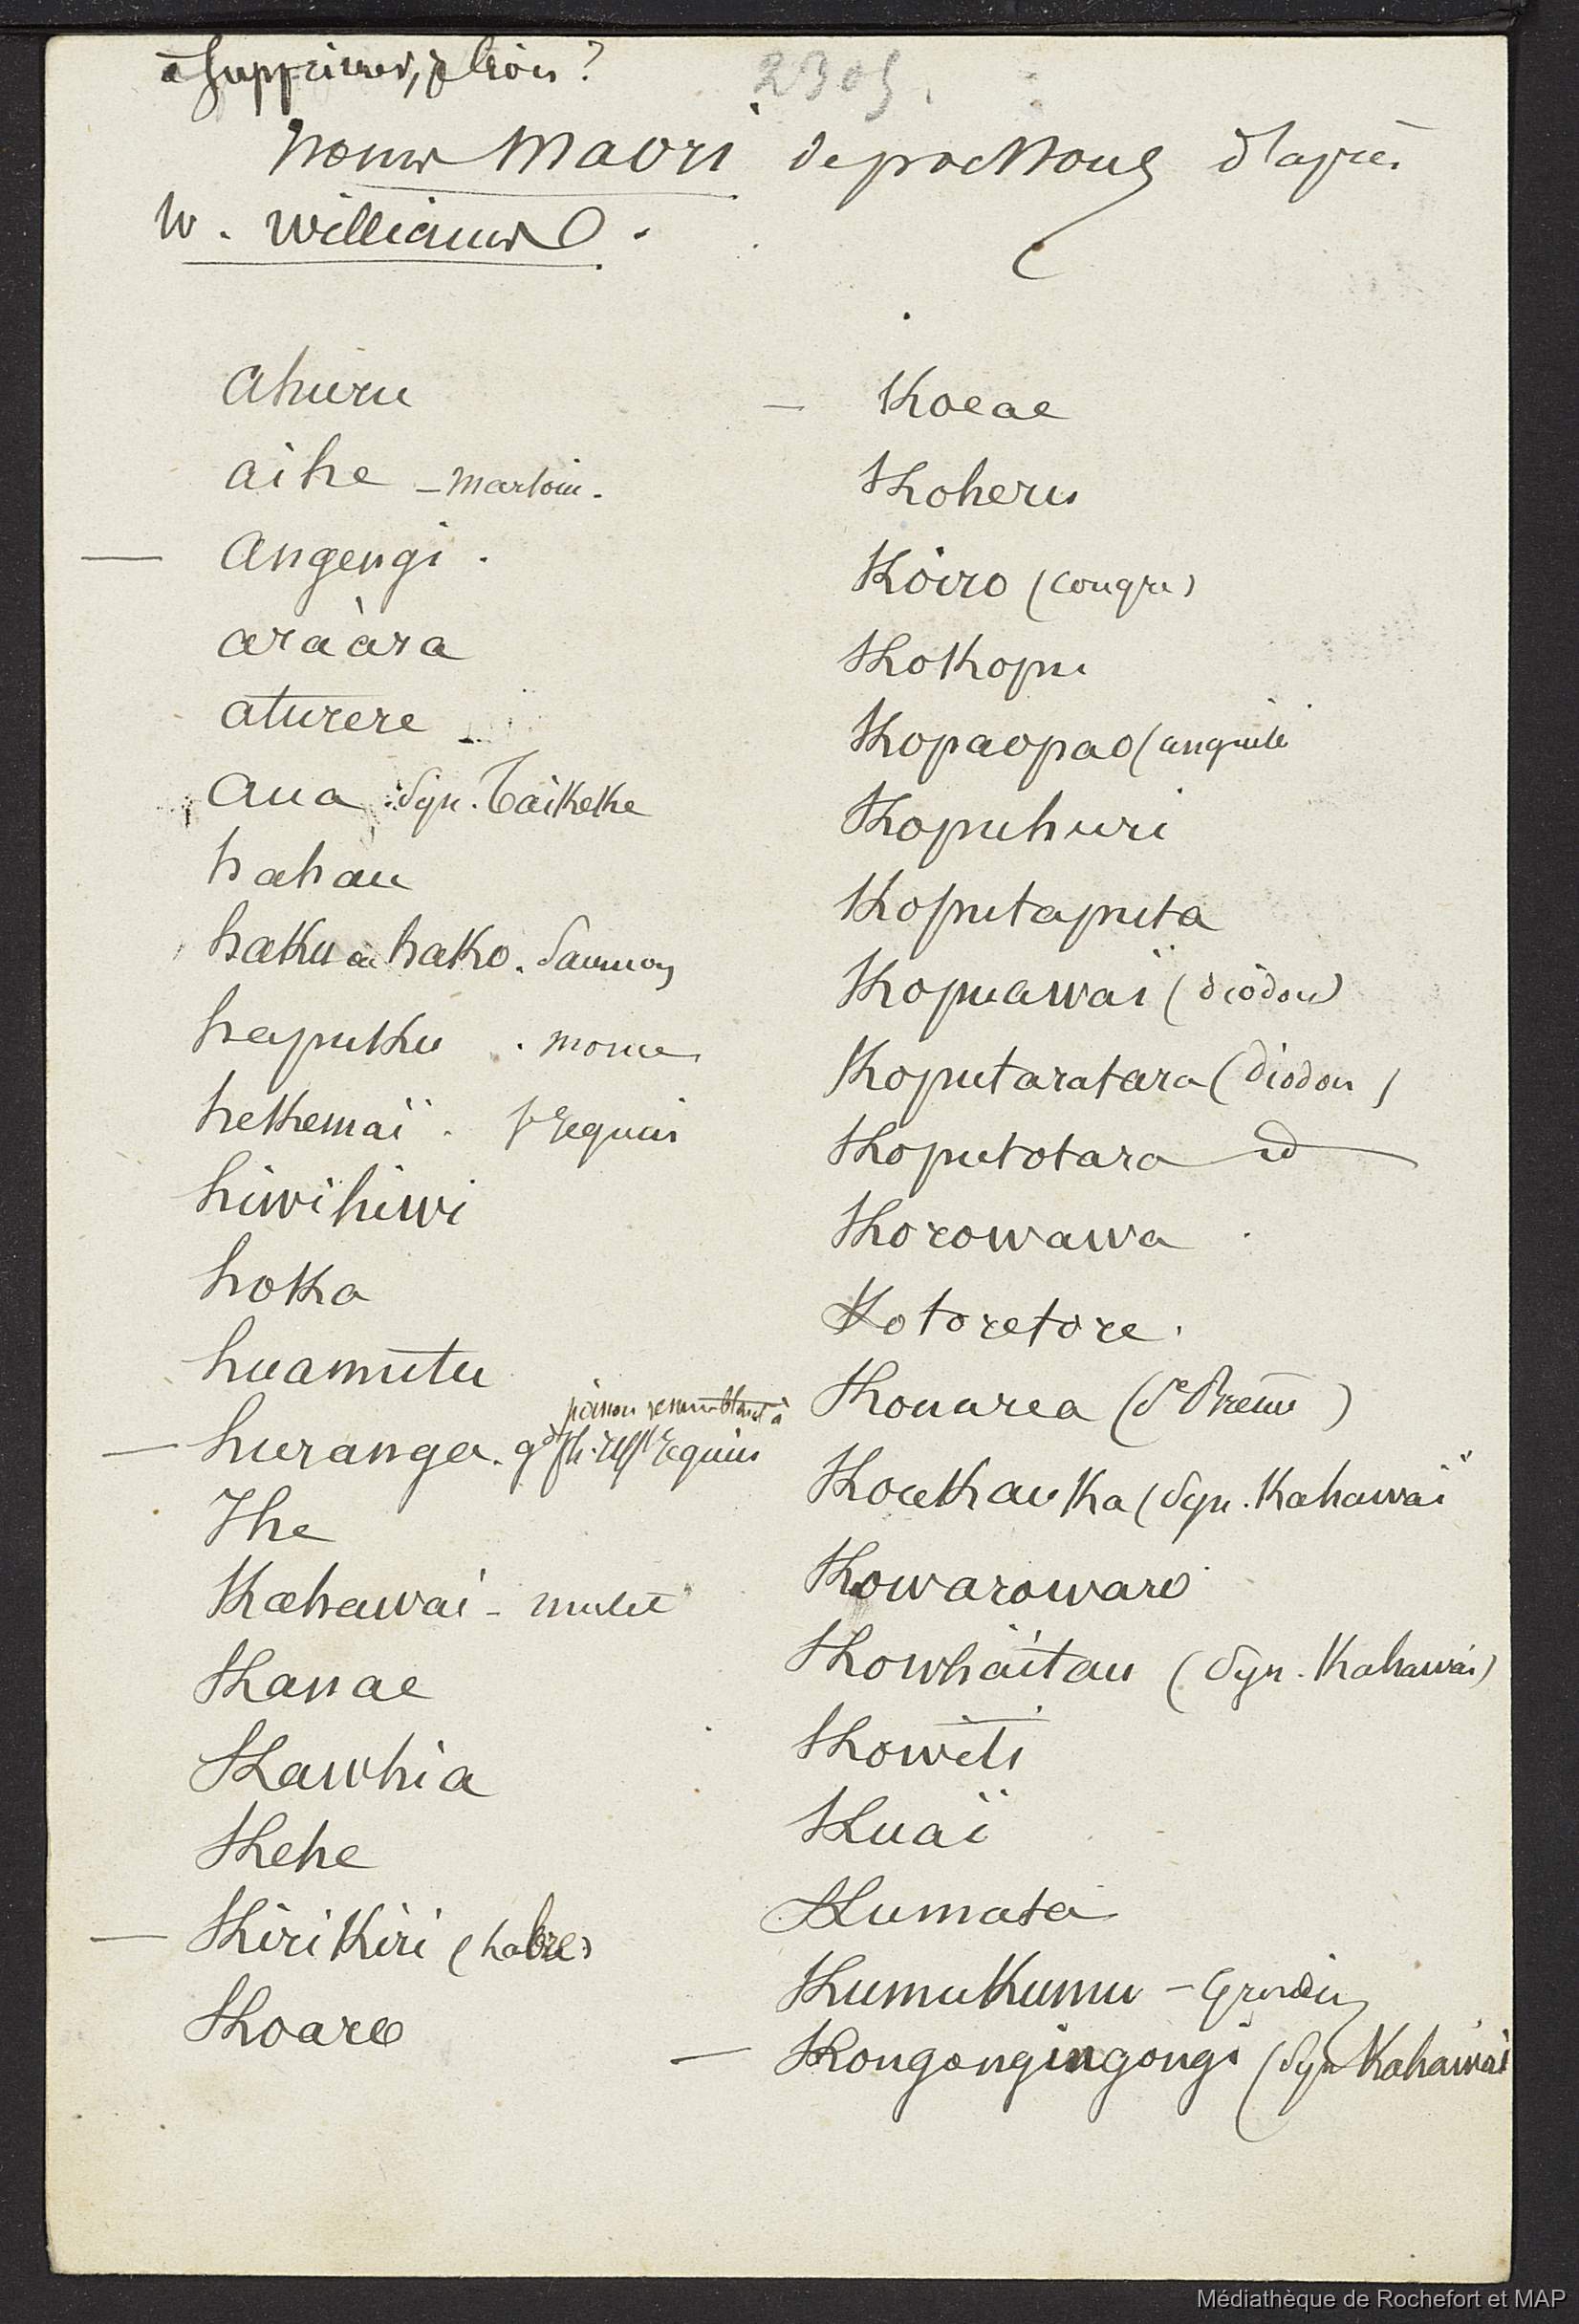 à supprimer,
2305.
noms maori de poissons d'après
W. Williams.
ahuru
aihe - marsouin.
— angengi.
araàra
aturere
aua. Syn. Taikeke
hahau
haku ou hako. Saumon
hapuku. morue
hekemaï. requin
hiwihiwi
hoka
huamutu
poisson ressemblant à
— huranga. gd requin
Ihe
Kahawai - mulet
Kanae
Kawhia
Kehe
— Kirikiri (labre)
Koaro
— Koeae
Koheru
Koiro (congre)
Kokopu
Kopaopao (anguille
Kopuhuri
Koputaputa
Kopuawaï (diodon)
Koputaratara (Diodon)
Koputotara id
Korowawa.
Kotoretore.
Kouarea
Koukauka (Syn. Kahawaï
Kowarowaro
Kowhaitau (Syn. Kahawai)
Kowiti
Kuaï
Kumata
Kumukumu - Grondin
— Kongongingongi (Syn Kahawaï
Médiathèque de Rochefort et MAP